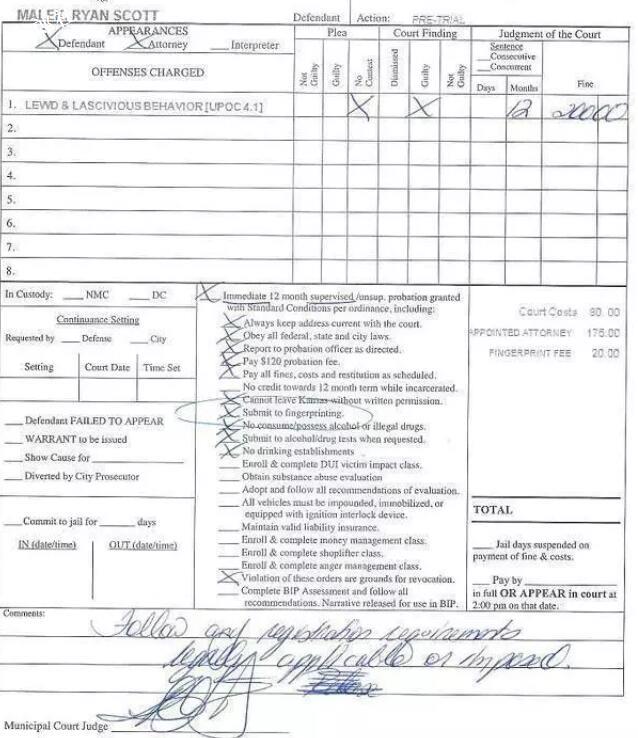 MALEE, RYAN SCOTT
Defendant
Action: PRE-TRIAL
APPEARANCES
X Defendant X Attorney ___ Interpreter
OFFENSES CHARGED
Plea
Not Guilty
Guilty
No Contest
Court Finding
Dismissed
Guilty
Not Guilty
Judgment of the Court
Sentence
___Consecutive
___Concurrent
Days
Months
Fine
1. LEWD & LASCIVIOUS BEHAVIOR [UPOC 4.1] X X 12 20000
2.
3.
4.
5.
6.
7.
8.
In Custody: ___ NMC ___ DC
Continuance Setting
Requested by ___ Defense ___ City
Setting
Court Date
Time Set
___ Defendant FAILED TO APPEAR
___ WARRANT to be issued
___ Show Cause for
___ Diverted by City Prosecutor
___ Commit to jail for ___ days
IN (date/time)
OUT (date/time)
X Immediate 12 month supervised/unsup. probation granted
with Standard Conditions per ordinance, including:
X Always keep address current with the court.
X Obey all federal, state and city laws.
X Report to probation officer as directed.
X Pay $120 probation fee.
X Pay all fines, costs and restitution as scheduled.
___ No credit towards 12 month term while incarcerated.
X Cannot leave Kansas without written permission.
X Submit to fingerprinting.
X No consume/possess alcohol or illegal drugs.
X Submit to alcohol/drug tests when requested.
X No drinking establishments
___ Enroll & complete DUI victim impact class.
___ Obtain substance abuse evaluation
___ Adopt and follow all recommendations of evaluation.
___ All vehicles must be impounded, immobilized, or
equipped with ignition interlock device.
___ Maintain valid liability insurance.
___ Enroll & complete money management class.
___ Enroll & complete shoplifter class.
___ Enroll & complete anger management class.
X Violation of these orders are grounds for revocation.
___ Complete BIP Assessment and follow all
recommendations. Narrative released for use in BIP.
Court Costs 90.00
APPOINTED ATTORNEY 175.00
FINGERPRINT FEE 20.00
TOTAL
___ Jail days suspended on
payment of fine & costs.
___ Pay by
in full OR APPEAR in court at
2:00 pm on that date.
Comments:
Follow any registration requirements
legally applicable or imposed.
Municipal Court Judge